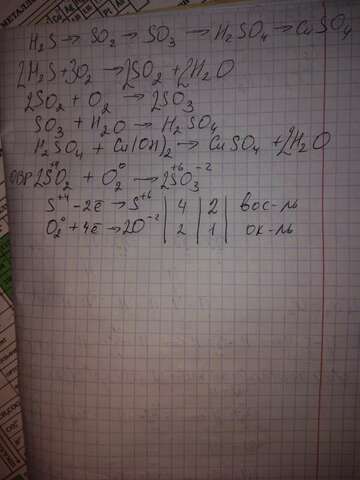 H₂S → SO₂ → SO₃ → H₂SO₄ → CuSO₄
2H₂S + 3O₂ → 2SO₂ + 2H₂O
2SO₂ + O₂ → 2SO₃
SO₃ + H₂O → H₂SO₄
H₂SO₄ + Cu(OH)₂ → CuSO₄ + 2H₂O
ОВР 2S⁺⁴O₂ + O₂⁰ → 2S⁺⁶O₃⁻²
S⁺⁴ - 2ē → S⁺⁶ | 4 | 2 | вос-ль
O₂⁰ + 4ē → 2O⁻² | 2 | 1 | ок-ль